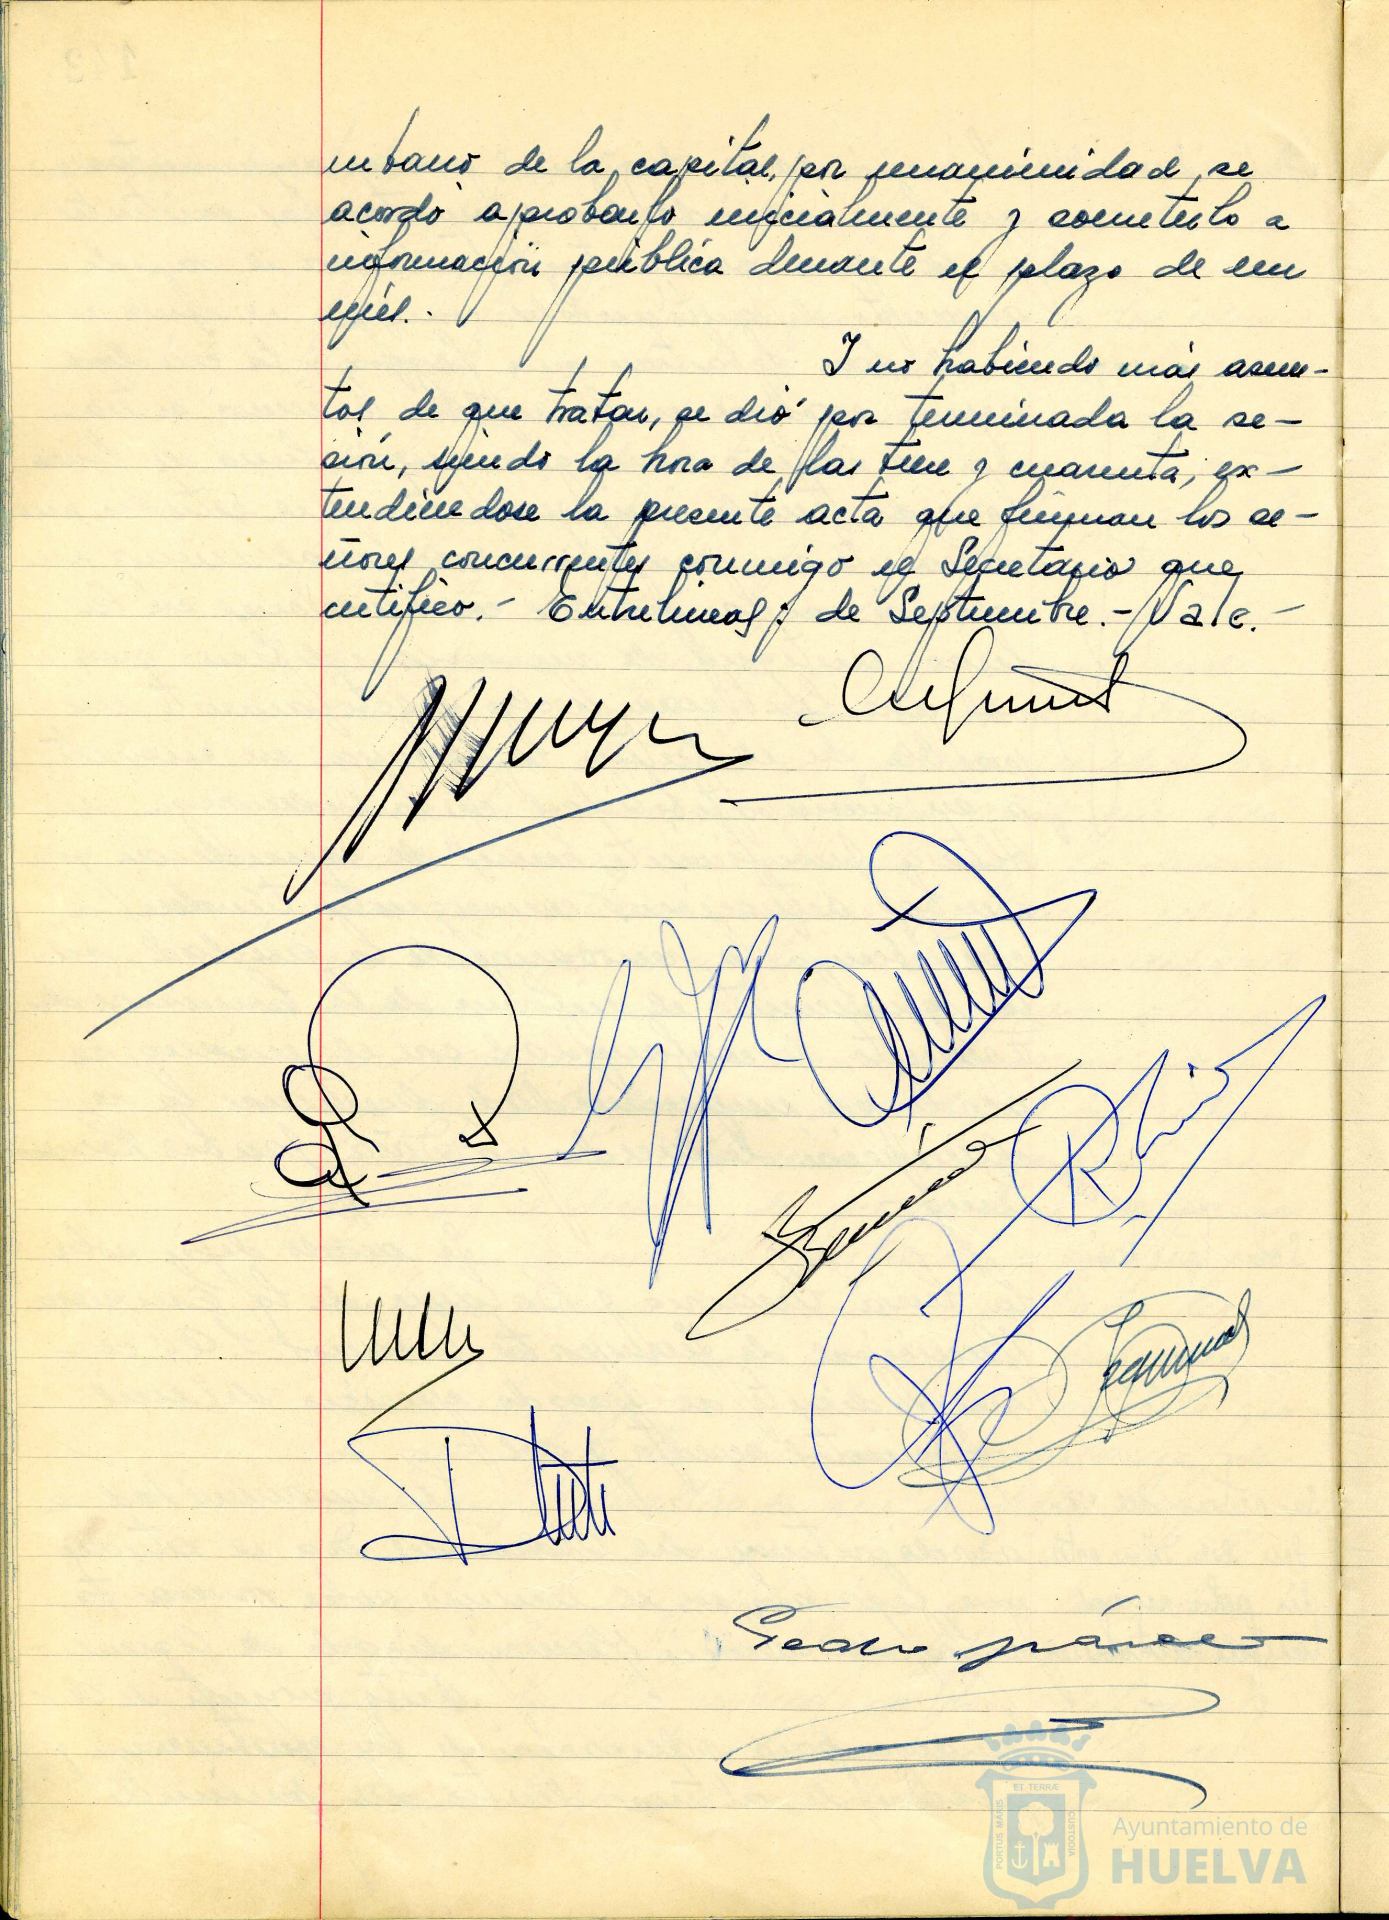 urbano de la capital, por unanimidad se
acordó aprobarlo inicialmente y someterlo a
información pública durante el plazo de un
mes.-
Y no habiendo más asun-
tos de que tratar, se dió por terminada la se-
sión, siendo la hora de las trece y cuarenta, ex-
tendiéndose la presente acta que firman los se-
ñores concurrentes conmigo el Secretario que
certifico.- Entrelíneas: de Septiembre.- Vale.-
Pedro
ET TERRÆ
PORTUS MARIS
CUSTODIA
Ayuntamiento de
HUELVA